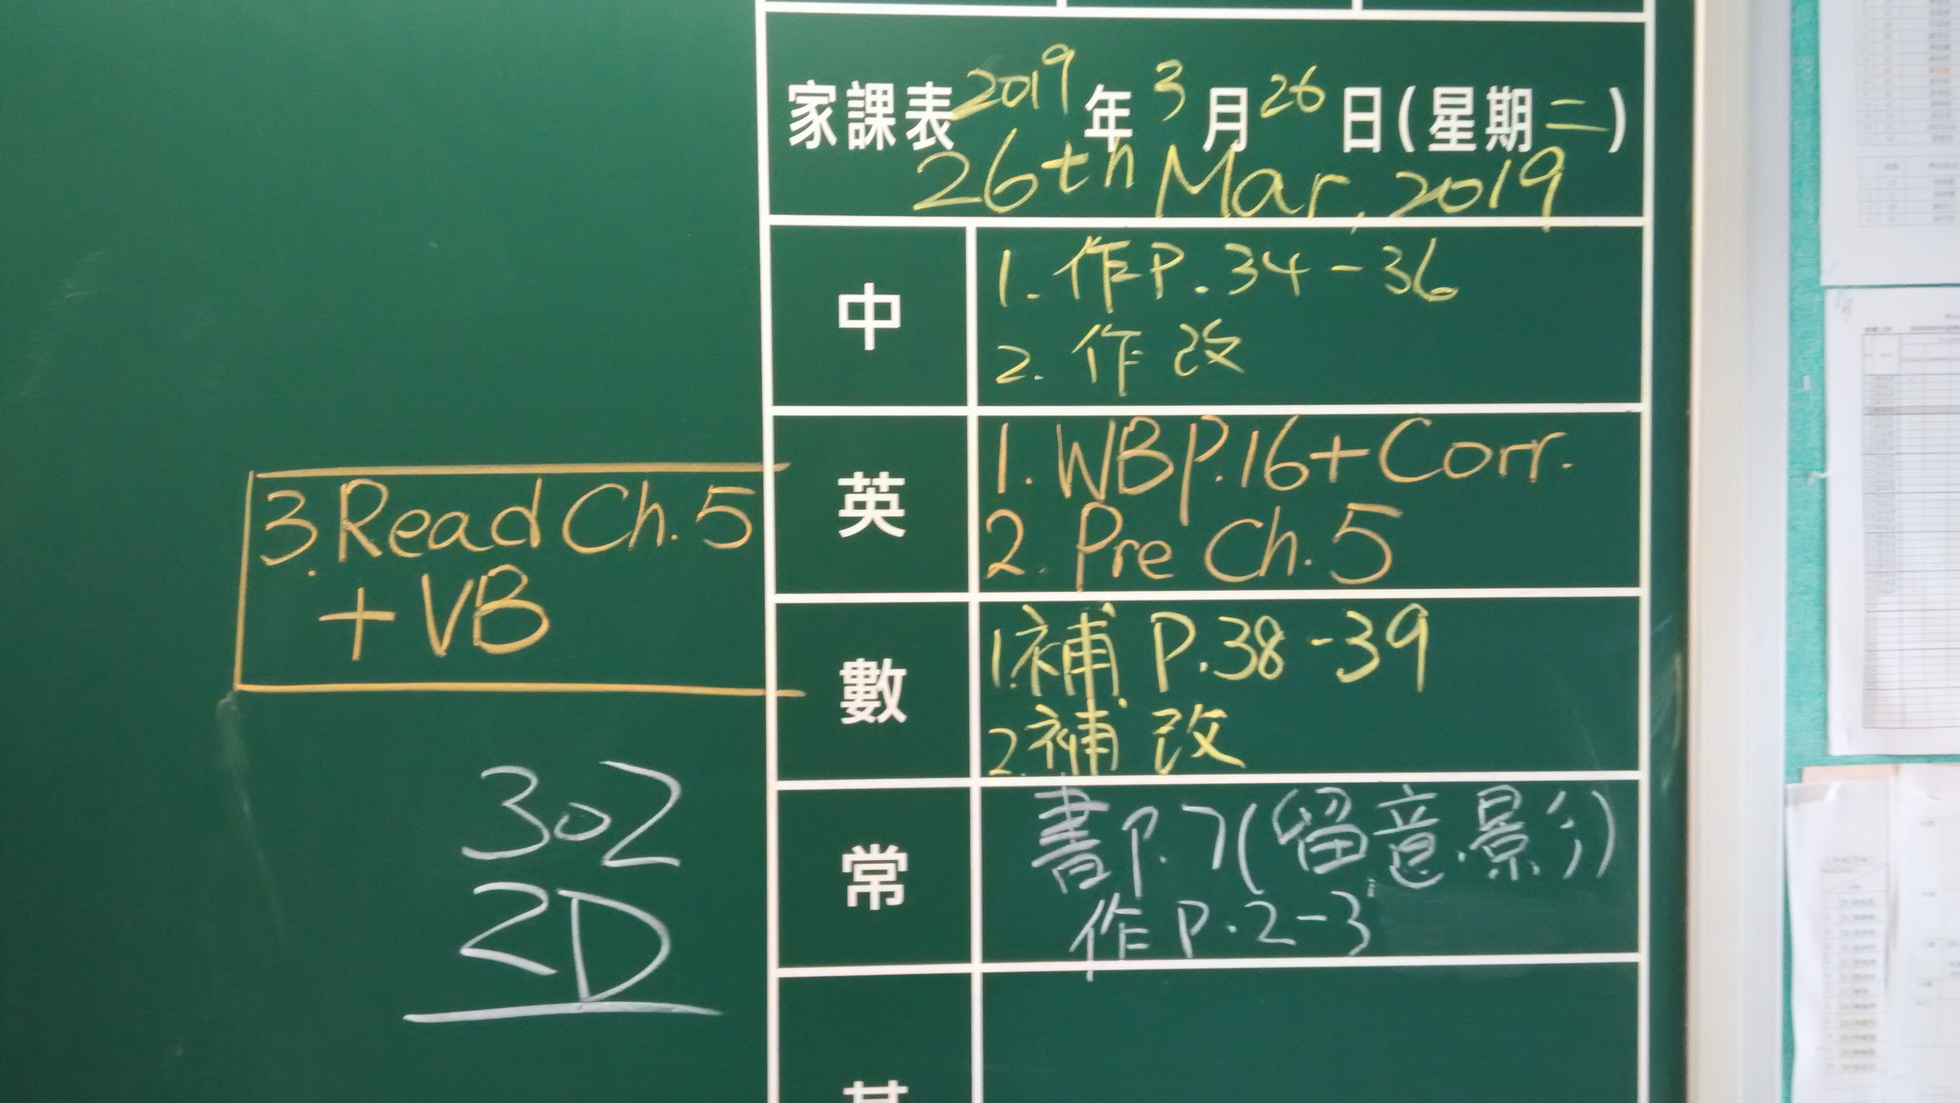 家課表 2019 年 3 月 26 日(星期二)
26th Mar, 2019
中
1. 作 P. 34 - 36
2. 作 改
英
1. WB P.16 + Corr.
2. Pre Ch. 5
3. Read Ch. 5
+ VB
數
1. 補 P. 38 - 39
2. 補 改
常
書 P. 7 (留意.景彡)
作 P. 2 - 3
302
2D